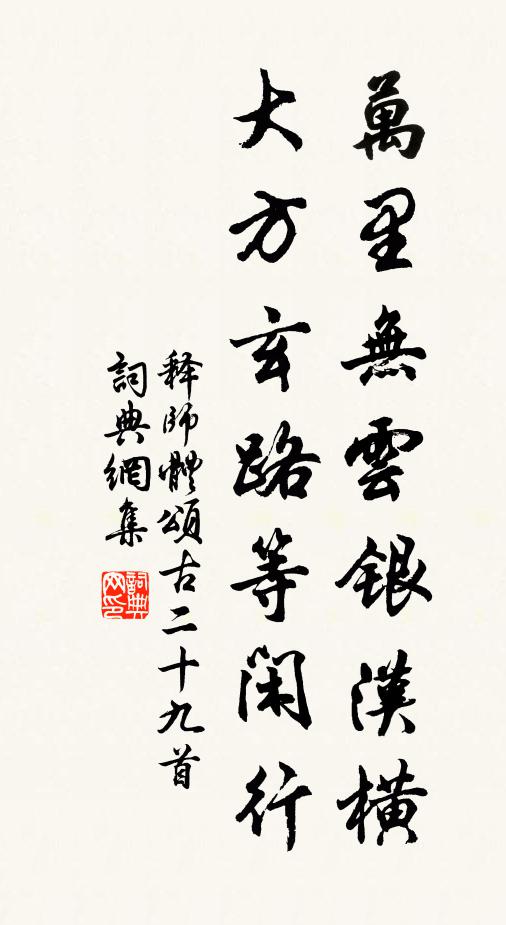 萬里無雲銀漢橫
大方玄路等閑行
释師體頌古二十九首
詞典網集
詞典网印